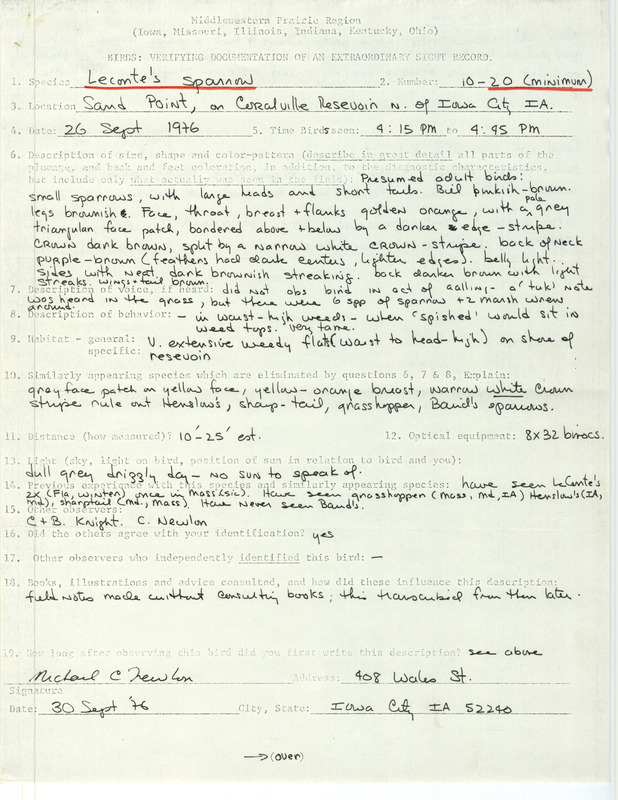 Middlewestern Prairie Region
(Iowa, Missouri, Illinois, Indiana, Kentucky, Ohio)
BIRDS: VERIFYING DOCUMENTATION OF AN EXTRAORDINARY SIGHT RECORD.
1. Species Leconte's Sparrow 2. Number: 10-20 (minimum)
3. Location Sand Point, on Coralville Resevoir N. of Iowa City IA.
4. Date: 26 Sept 1976 5. Time Bird seen: 4:15 PM to 4:45 PM
6. Description of size, shape and color-pattern (describe in great detail all parts of the
plumage, and beak and feet coloration, in addition, to the diagnostic characteristics,
but include only what actually was seen in the field): Presumed adult birds:
small sparrows, with large heads and short tails. Bill pinkish-brown.
legs brownish. Face, throat, breast + flanks golden orange, with a pale grey
triangular face patch, bordered above + below by a darker edge-stripe.
Crown dark brown, split by a narrow white crown-stripe. back of neck
purple-brown (feathers had dark centers, lighter edges). belly light.
Sides with neat dark brownish streaking. back darker brown with light
streaks. wings + tail brown.
7. Description of voice, if heard: did not obs bird in act of calling - a 'tuk' note
was heard in the grass, but there were 6 spp of sparrow + 2 marsh wren
around.
8. Description of behavior: - in waist-high weeds - when 'spished' would sit in
weed tops. Very tame.
9. Habitat - general: V. extensive weedy flats (waist to head-high) on shore of
specific: resevoir
10. Similarly appearing species which are eliminated by questions 6, 7 & 8, Explain:
grey face patch on yellow face, yellow-orange breast, narrow white crown
stripe rule out Henslow's, sharp-tail, grasshopper, Baird's sparrows.
11. Distance (how measured)? 10'-25' est. 12. Optical equipment: 8x32 binocs.
13. Light (sky, light on bird, position of sun in relation to bird and you):
dull grey drizzly day - no sun to speak of.
14. Previous experience with this species and similarly appearing species: have seen LeConte's
2X (Fla, winter) once in Mass (sic). Have seen grasshopper (Mass, Md, IA) Henslow's (IA,
Md), sharptail (Md., Mass). Have never seen Baird's.
15. Other observers:
C + B. Knight. C. Newlon
16. Did the others agree with your identification? yes
17. Other observers who independently identified this bird: -
18. Books, illustrations and advice consulted, and how did these influence this description:
field notes made without consulting books; this transcribed from them later.
19. How long after observing this bird did you first write this description? see above
Michael C Newlon Address: 408 Wales St.
Signature
Date: 30 Sept '76 City, State: Iowa City IA 52240
→(over)